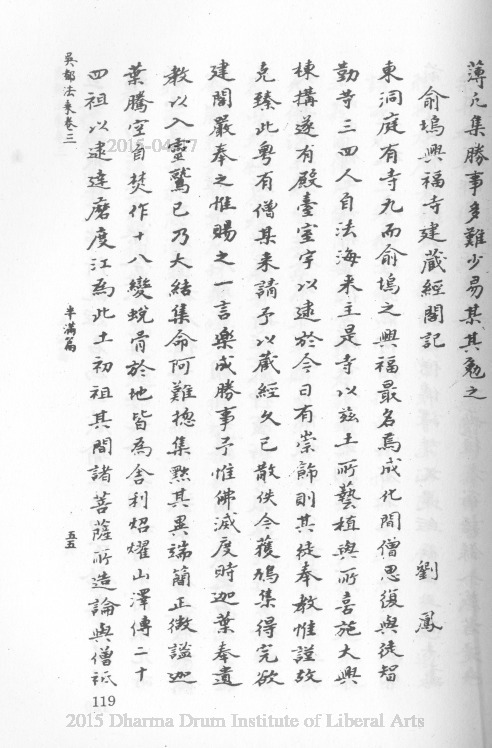 薄凡集勝事多難少易某其勉之
俞塢興福寺建藏經閣記
劉鳳
東洞庭有寺九而俞塢之興福最名焉成化間僧思復與徒智
勤等三四人自法海來主是寺以茲土所藝植與所喜施大興
棟搆遂有殿臺室宇以逮於今日有崇飾則其徒奉教惟謹故
克臻此粵有僧某來請予以藏經久已散佚今獲鳩集得完欲
建閣嚴奉之惟賜之一言樂成勝事予惟佛滅度時迦葉奉遺
教以入靈鷲已乃大結集命阿難捴集黜其異端簡正微謐迦
葉騰空自焚作十八變蛻骨於地皆為舍利炤燿山澤傳二十
四祖以逮達磨度江為此土初祖其間諸菩薩所造論與僧祇
吳都法乘卷三
半滿篇
五五
119
2015-04-17
2015 Dharma Drum Institute of Liberal Arts